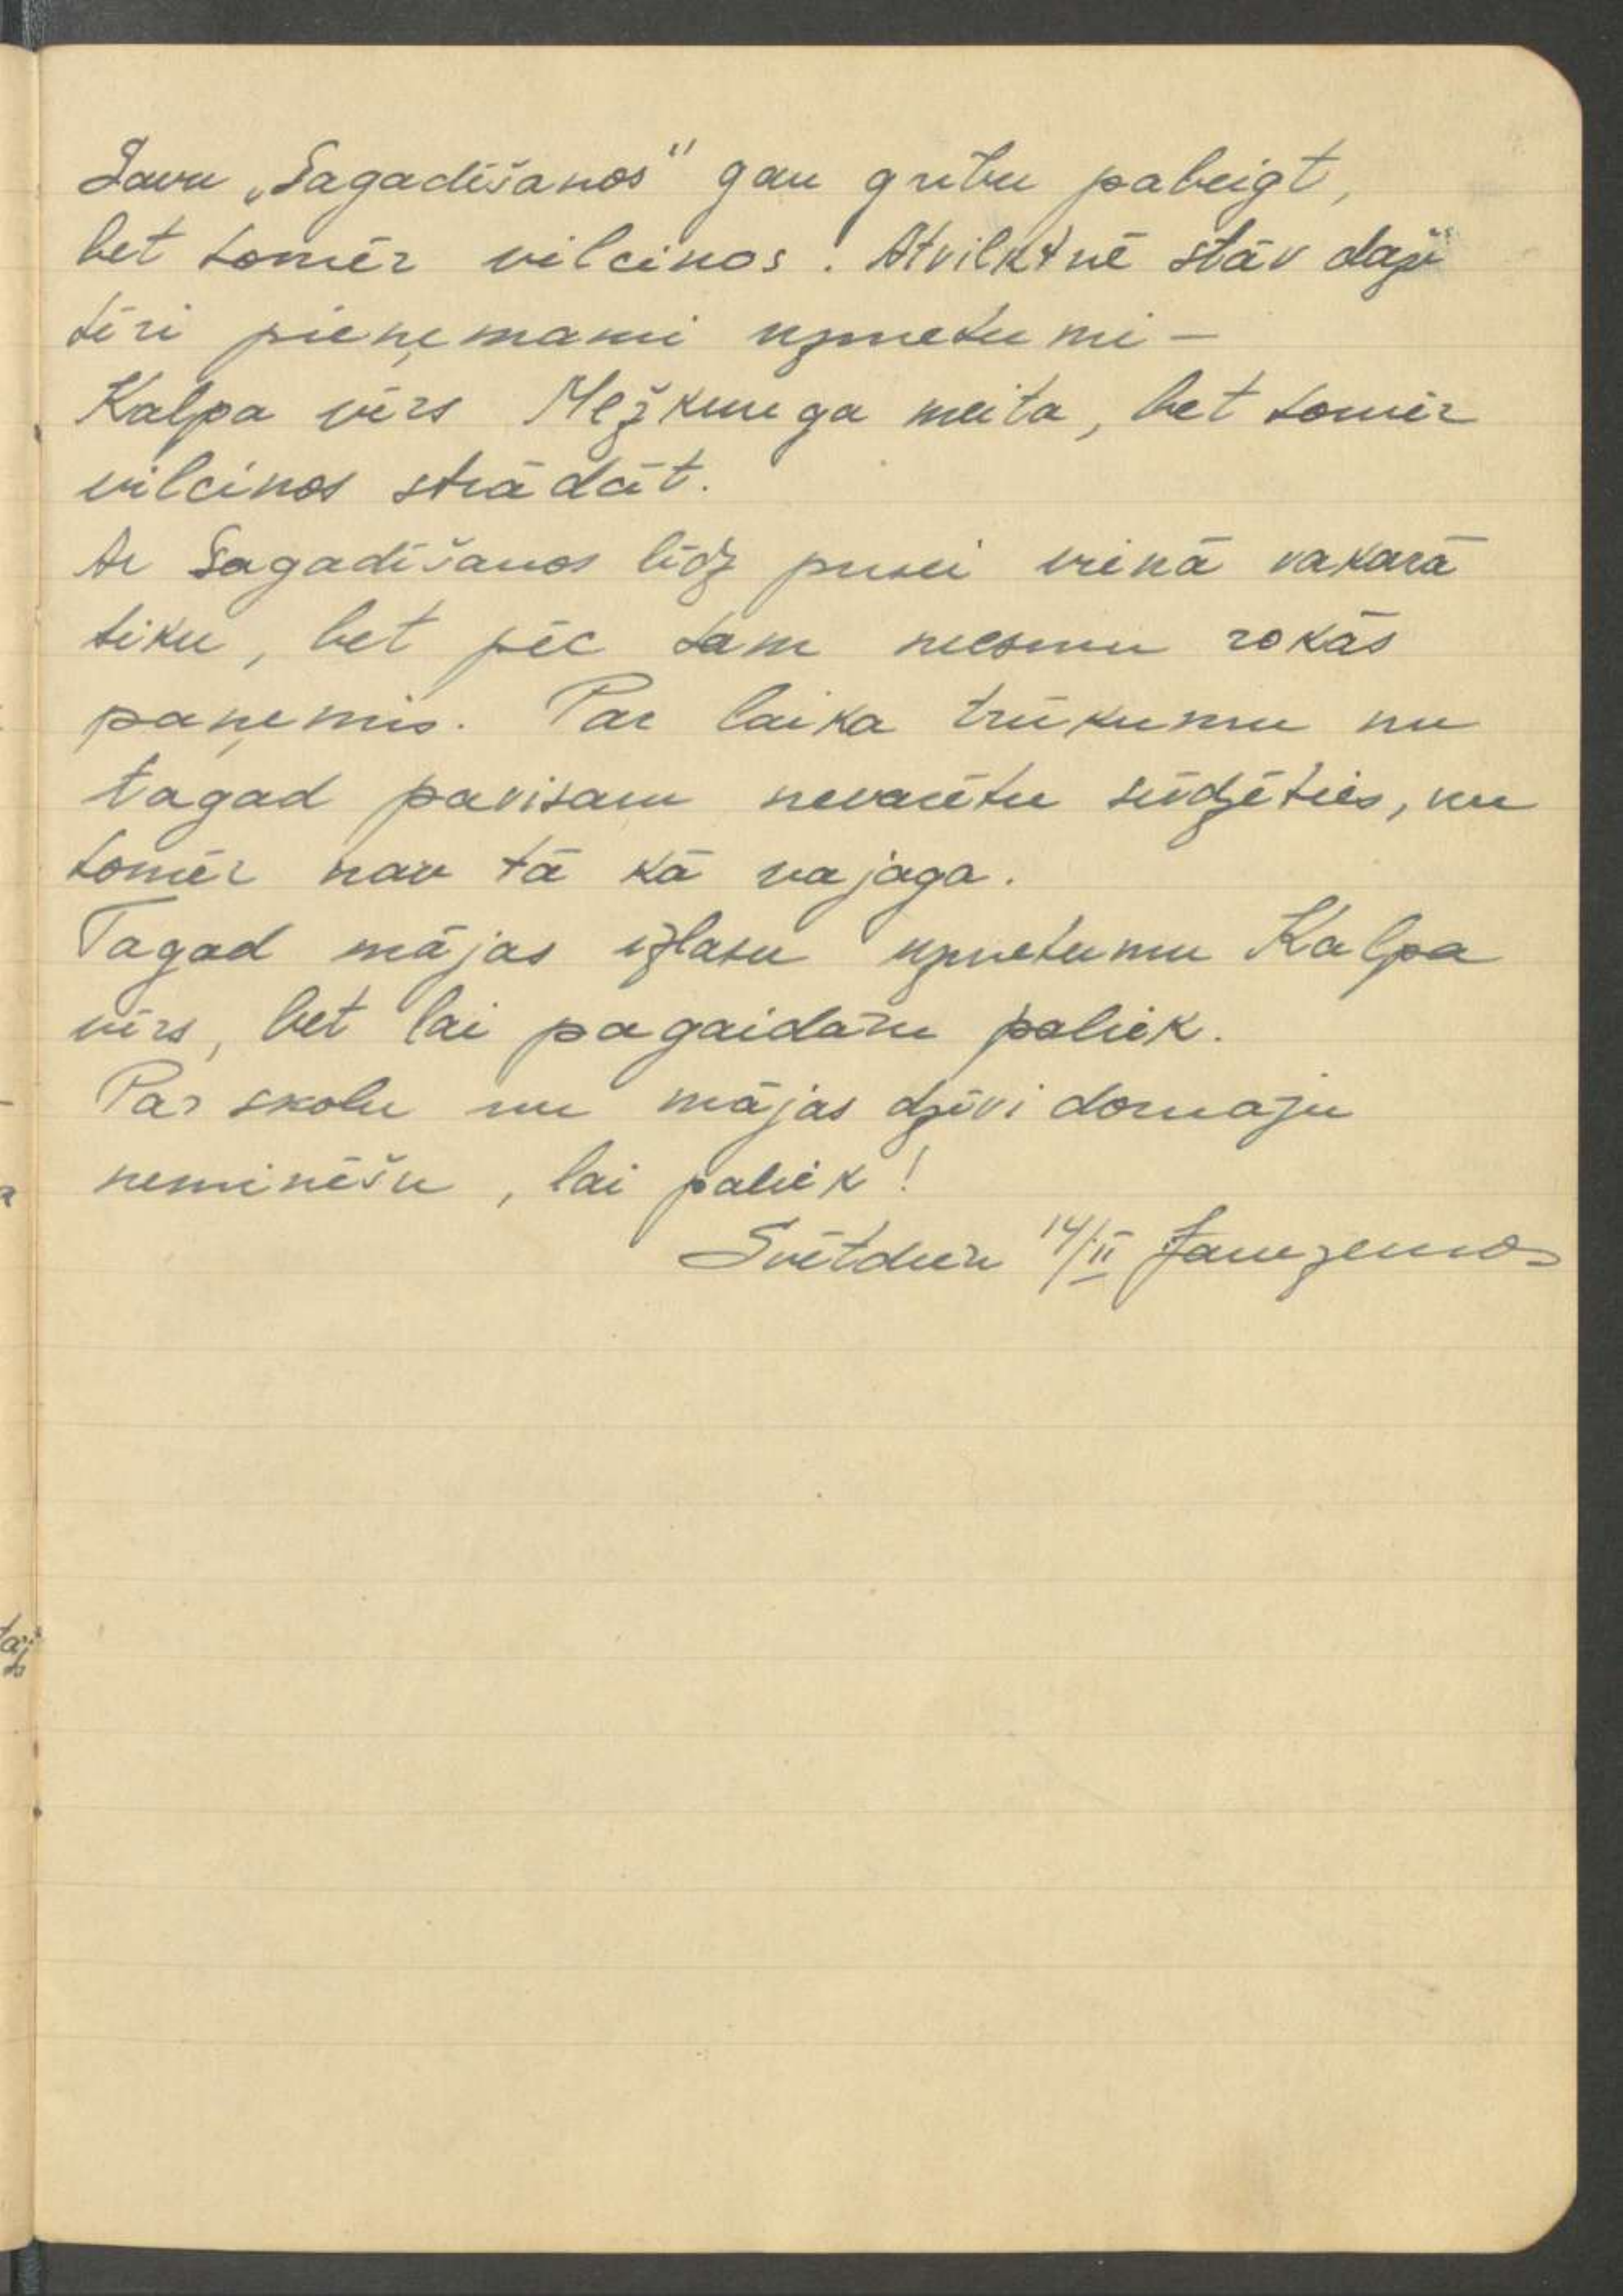 Savu „Sagadīšanos" gan gribu pabeigt,
bet tomēr vilcinos. Atvilktnē stāv daži
tīri pieņemami uzmetumi –
Kalpa vīrs Mežkunga meita, bet tomēr
vilcinos strādāt.
Ar Sagadīšanos līdz pusei vienā vakarā
tiku, bet pēc tam neesmu rokās
paņēmis. Par laika trūkumu nu
tagad pavisam nevarētu sūdzēties, nu
tomēr nav tā kā vajaga.
Tagad mājas izlasu uzmetumu Kalpa
vīrs, bet lai pagaidām paliek.
Par skolu un mājas dzīvi domāju
neminēšu, lai paliek!
Svētdien 14/II Jaunzemos